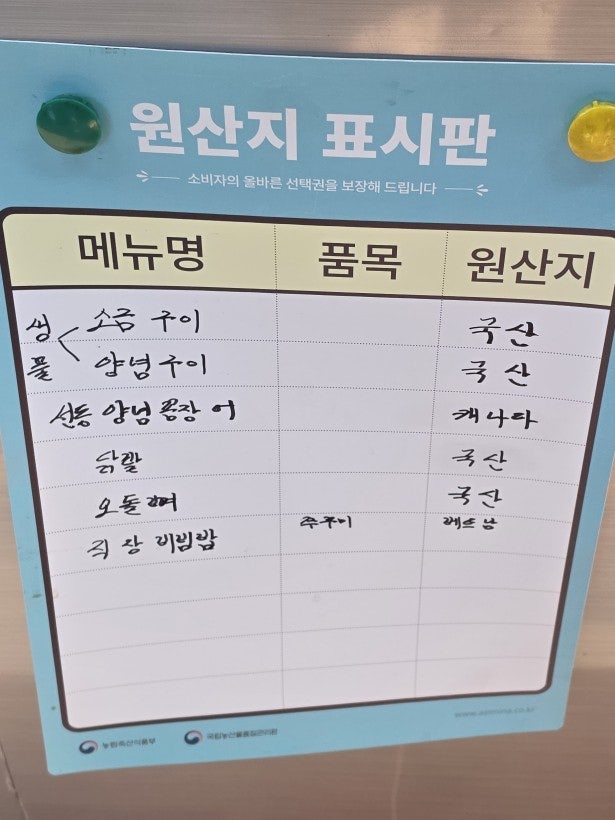 원산지 표시판
소비자의 올바른 선택권을 보장해 드립니다
메뉴명 품목 원산지
생물 소금 구이 국산
양념구이 국산
양념 꼼장어 캐나다
닭발 국산
오돌뼈 국산
쭈꾸미 베트남
비빔밥
www.
농림축산식품부 국립농산물품질관리원